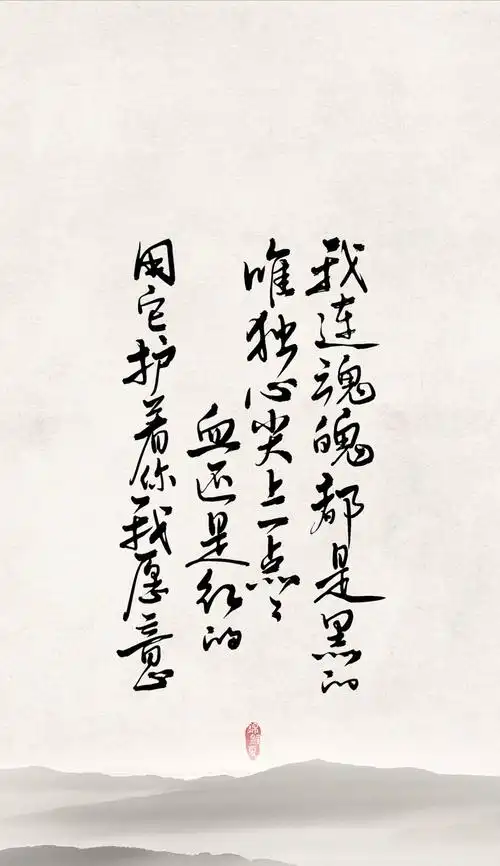 我连魂魄都是黑的
唯独心尖上一点点
血还是红的
用它护着你我愿意